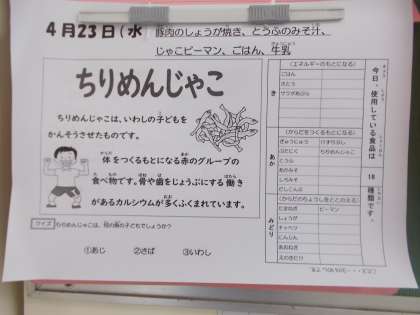 4月23日(水
豚肉のしょうが焼き、とうふのみそ汁、
じゃこピーマン、ごはん、牛乳
ちりめんじゃこ
ちりめんじゃこは、いわしの子どもを
かんそうさせたものです。
体をつくるもとになる赤のグループの
食べ物です。骨や歯をじょうぶにする働き
があるカルシウムが多くふくまれています。
クイズ ちりめんじゃこは、何の魚の子どもでしょうか？
①あじ ②さば ③いわし
今日、使用している食品は 18 種類です。
き
(エネルギーのもとになる)
ごはん
さとう
サラダあぶら
あか
(からだをつくるもとになる)
ぎゅうにゅう けずりぶし
ぶたにく ちりめんじゃこ
とうふ
あかみそ
しろみそ
みどり
(からだのちょうしをととのえる)
たまねぎ ピーマン
しょうが
キャベツ
にんじん
あおねぎ
えのきだけ